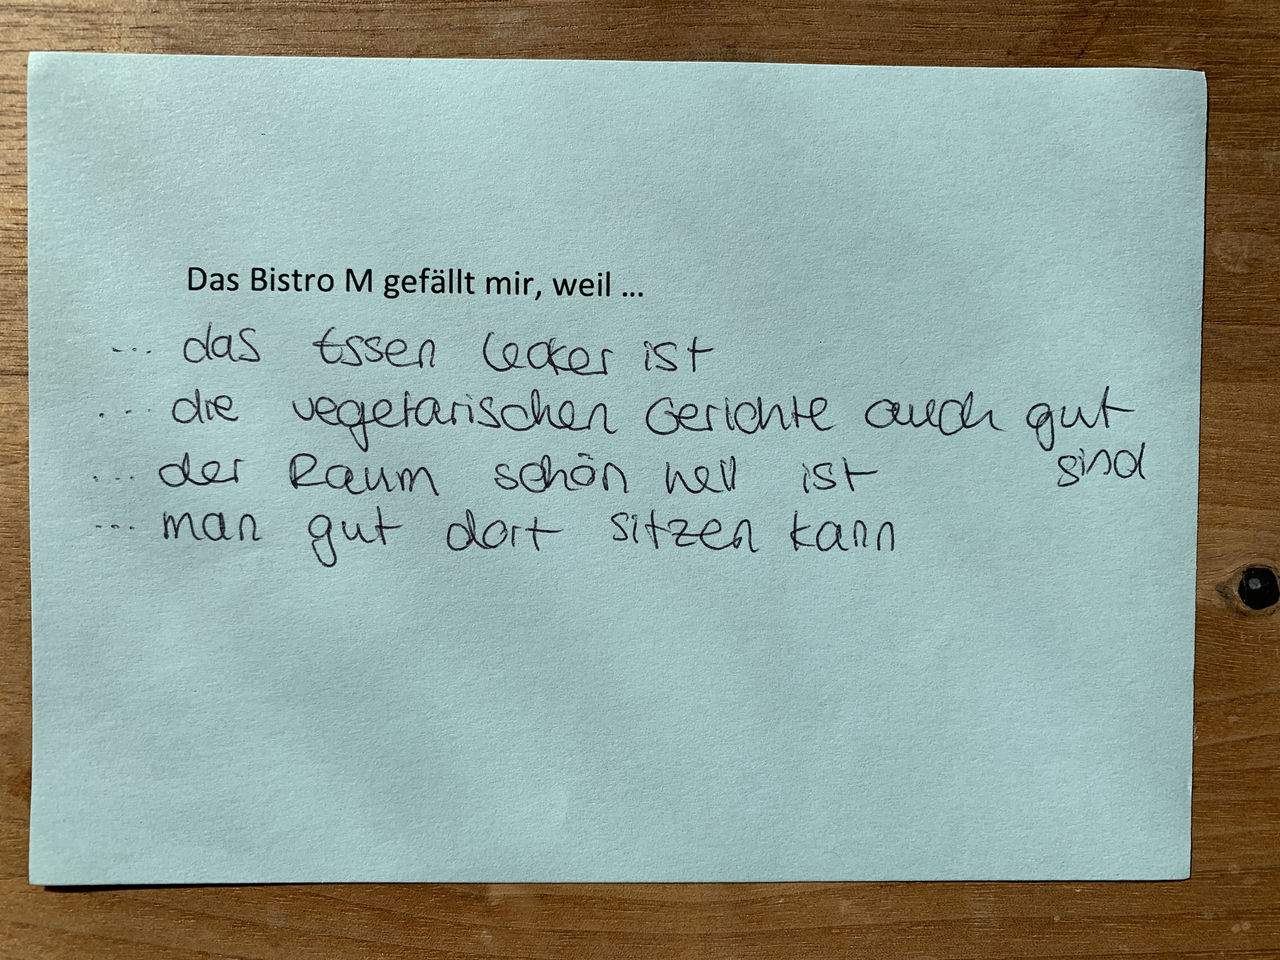 Das Bistro M gefällt mir, weil ...
... das Essen lecker ist
... die vegetarischen Gerichte auch gut
sind
... der Raum schön hell ist
... man gut dort sitzen kann